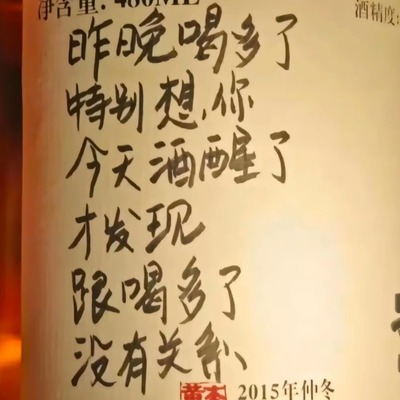 净含量: 480ML
酒精度:
昨晚喝多了
特别想你
今天酒醒了
才发现
跟喝多了
没有关系
2015年仲冬